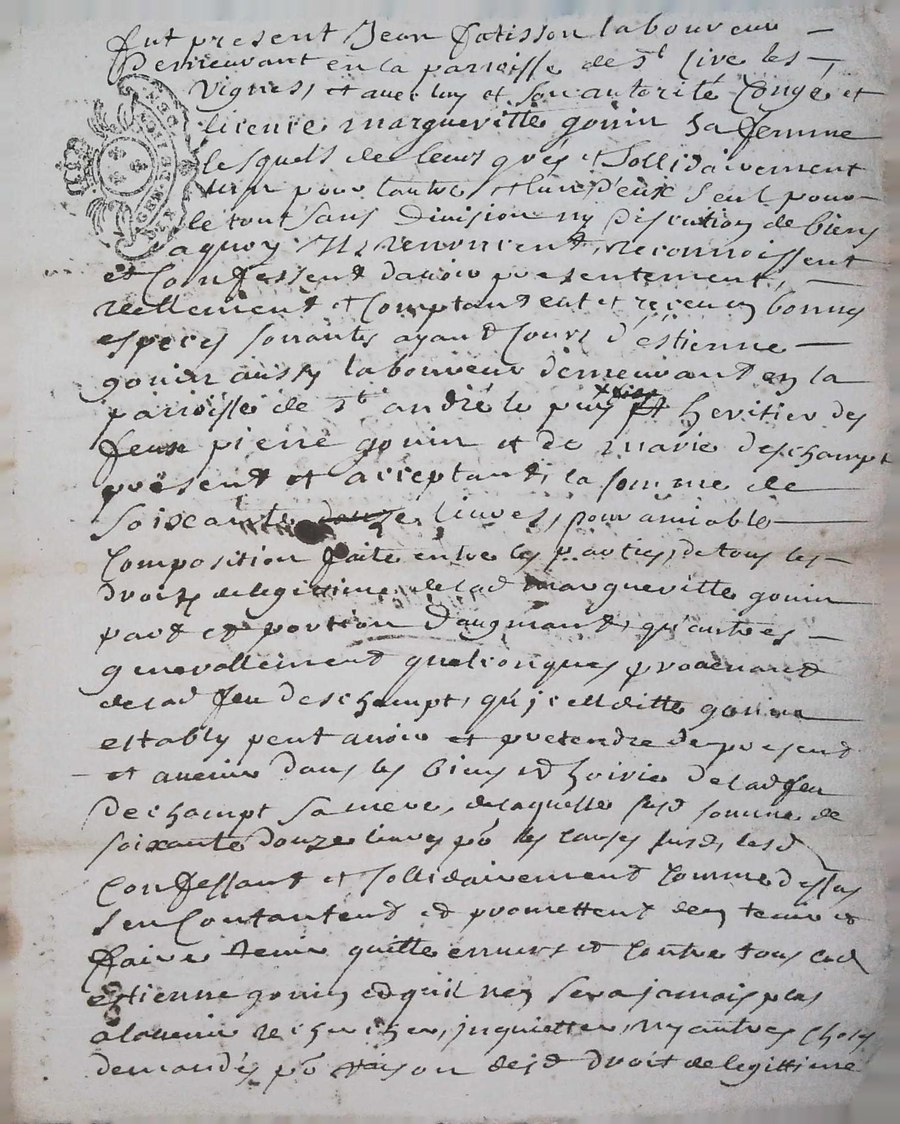 fut present Jean fatisson laboureur
Demeurant en la parroisse de St Cire les
Vignes, et avec luy et son autorité Congé et
licence margueritte gonin sa femme
lesquels de leurs grés et sollidairement
lun pour lautre et lun d'eux seul pour
le tout sans Division ny Discution de biens
aquoy Ils renoncent, reconnoissent
et Confessent d'avoir presentement,
réellement et Comptant eut et receu en bonnes
especes sonantes ayant Cours d'éstienne
gonin aussy laboureur demeurant en la
parroisse de St andré le puis heritier des
feux pierre gonin et de marie deschampt
présent et acceptant, la somme de
soixante douze livres, pour amiable
Composition faite entre les parties, de tous les
droits de legitime de lad margueritte gonin
part et portion D'augmant, qu'autres
generallement quelconques provenant
de lad feu Deschampt, qu'jcelle ditte gonin
establÿ peut avoir et pretendre de present
et avenir dans les biens et hoirie De lad feu
Dechampt sa mere, de laquelle susd somme de
soixante douze livres pr les causes susd, lesd
Confessant et sollidairement Comme dessus
s'en Contantent et promettent den tenir et
faire tenir quitte envers et contre tous led
éstienne gonin et quil nen sera jamais plus
alavenir recherchéz, jnquietter, ny autres choses
demandés pr raison desd droit de legittime